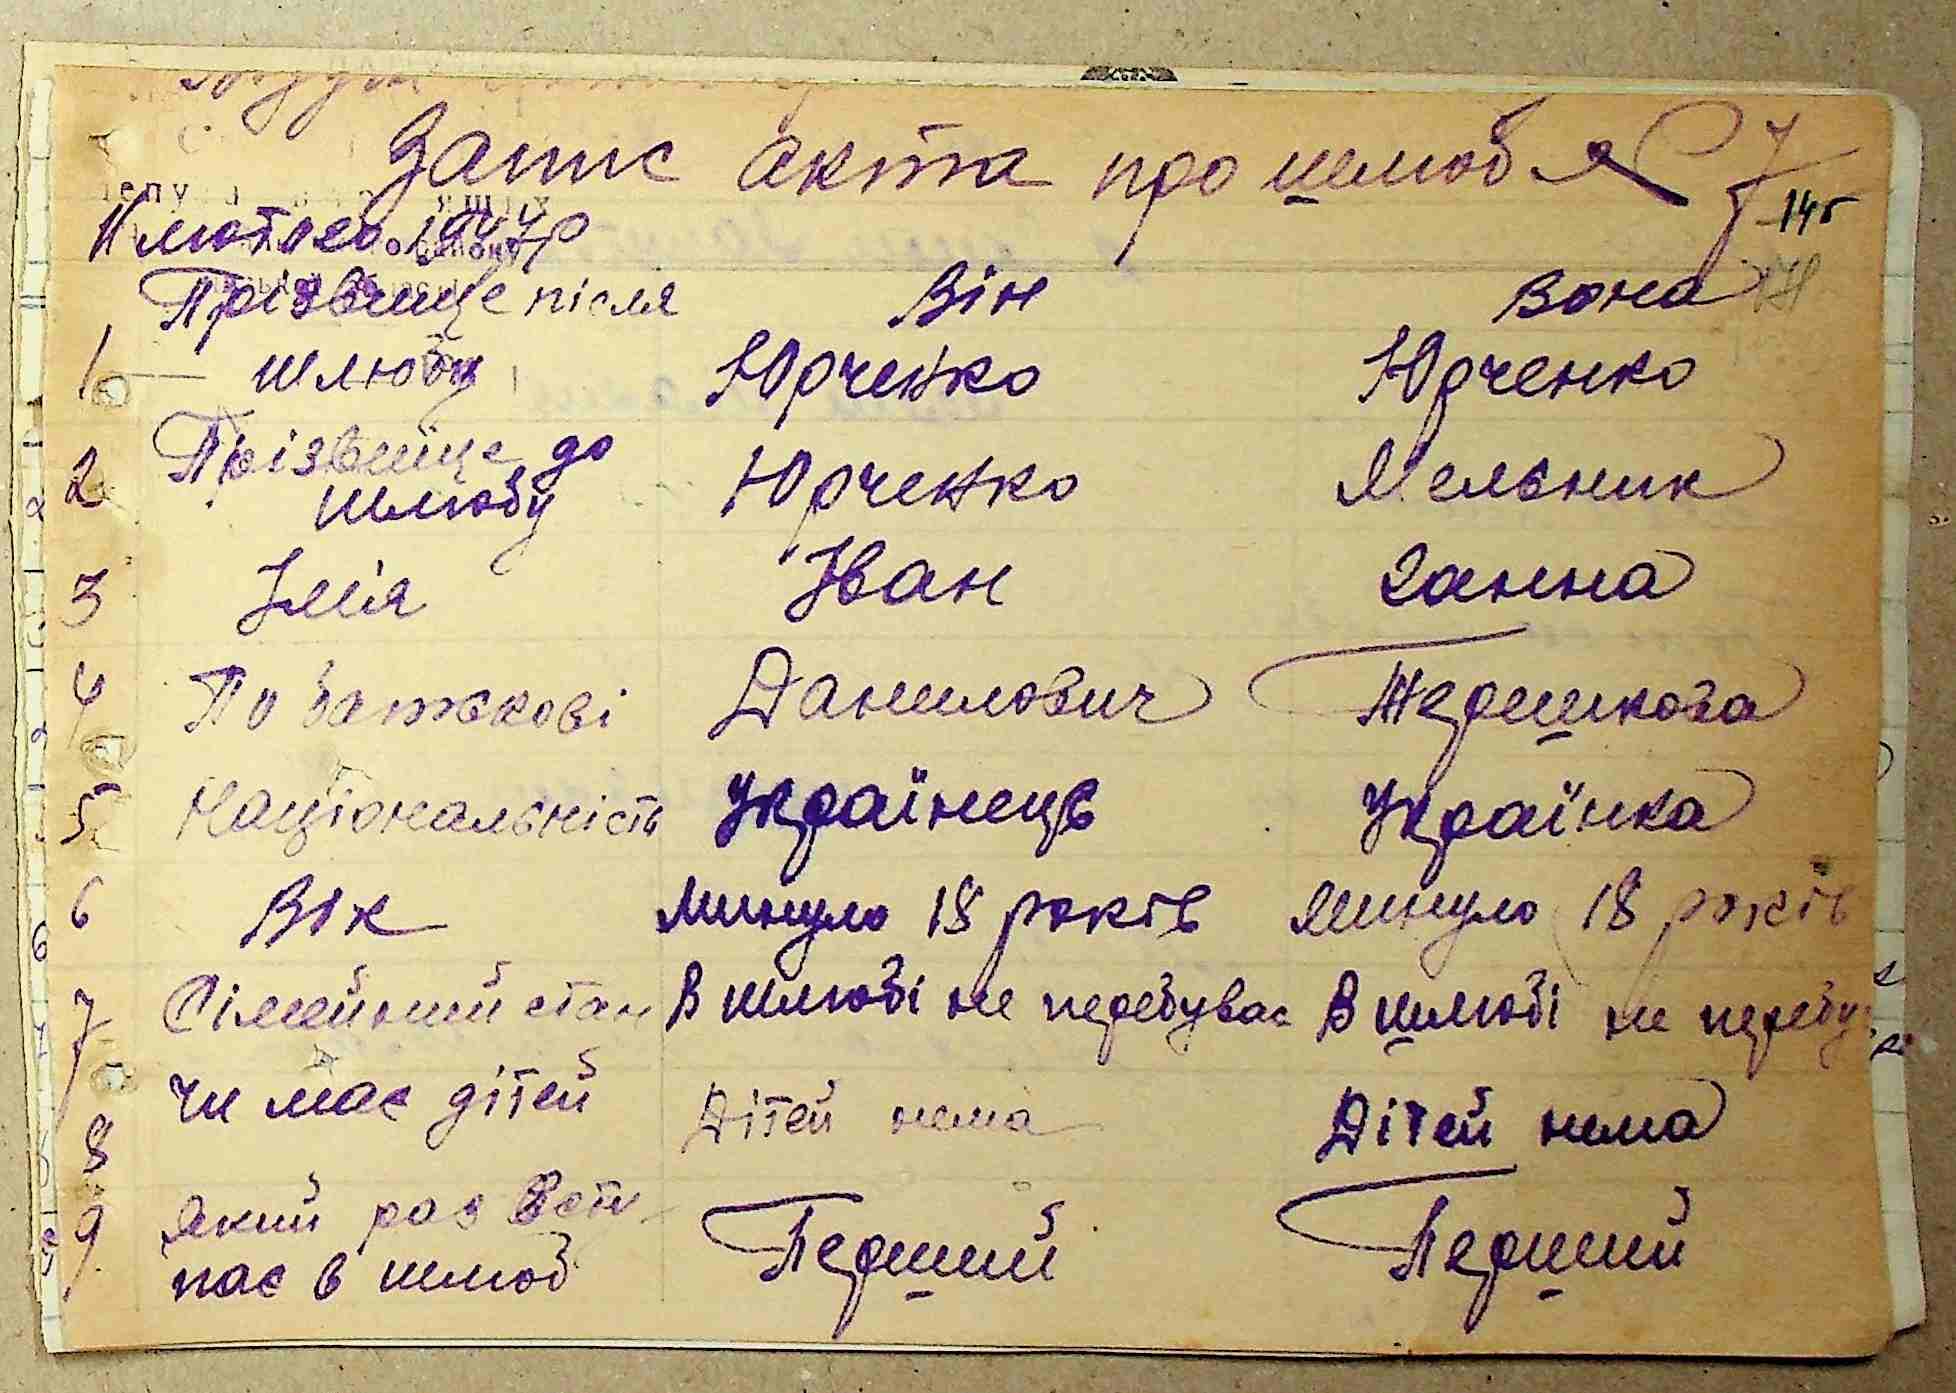 Запис акта про шлюб № 7
14б
11 лютого 1947р
Прізвище після Він Вона
1 шлюбу Юрченко Юрченко
2 Прізвище до Юрченко Мельник
шлюбу
3 Імія Іван Ганна
4 По батькові Данилович Терешкова
5 Національність Українець Українка
6 Вік Минуло 18 років Минуло 18 років
7 Сімейний стан В шлюбі не перебуває В шлюбі не перебу
8 Чи має дітей Дітей нема Дітей нема
9 який раз всту Перший Перший
пає в шлюб